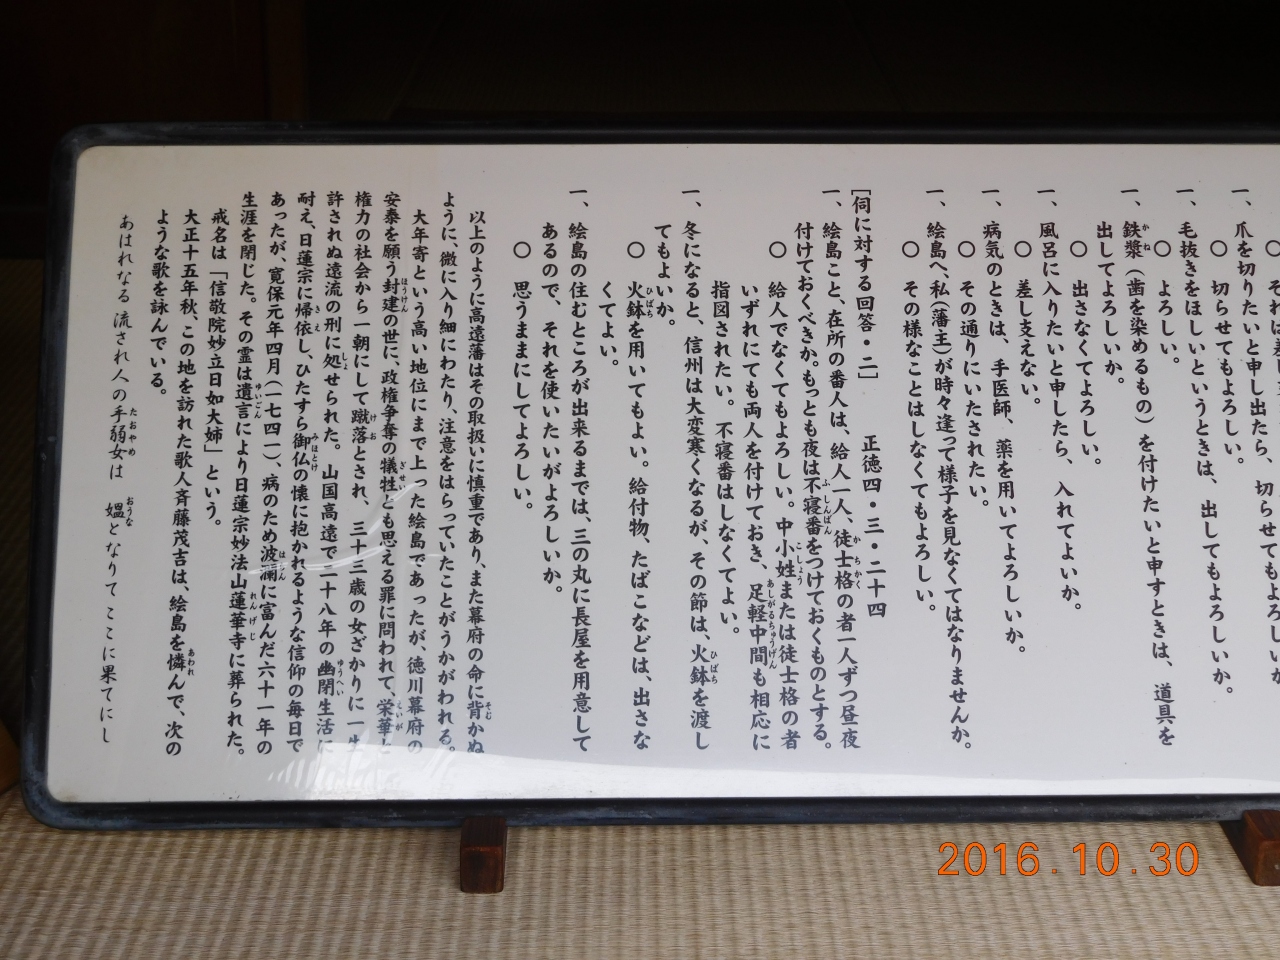 一、爪を切りたいと申し出たら、切らせてもよろしいか。
○ 切らせてもよろしい。
一、毛抜きをほしいというときは、出してもよろしいか。
○ よろしい。
一、鉄漿（歯を染めるもの）を付けたいと申すときは、道具を
出してよろしいか。
○ 出さなくてよろしい。
一、風呂に入りたいと申したら、入れてよいか。
○ 差し支えない。
一、病気のときは、手医師、薬を用いてよろしいか。
○ その通りにいたされたい。
一、絵島へ、私（藩主）が時々逢って様子を見なくてはなりませんか。
○ その様なことはしなくてもよろしい。
［伺に対する回答・二］ 正徳四・三・二十四
一、絵島こと、在所の番人は、給人一人、徒士格の者一人ずつ昼夜
付けておくべきか。もっとも夜は不寝番をつけておくものとする。
○ 給人でなくてもよろしい。中小姓または徒士格の者
いずれにても両人を付けておき、足軽中間も相応に
指図されたい。不寝番はしなくてよい。
一、冬になると、信州は大変寒くなるが、その節は、火鉢を渡し
てもよいか。
○ 火鉢を用いてもよい。給付物、たばこなどは、出さな
くてよい。
一、絵島の住むところが出来るまでは、三の丸に長屋を用意して
あるので、それを使いたいがよろしいか。
○ 思うままにしてよろしい。
以上のように高遠藩はその取扱いに慎重であり、また幕府の命に背かぬ
ように、微に入り細にわたり、注意をはらっていたことがうかがわれる。
大年寄という高い地位にまで上った絵島であったが、徳川幕府の
安泰を願う封建の世に、政権争奪の犠牲とも思える罪に問われて、栄華と
権力の社会から一朝にして蹴落とされ、三十三歳の女ざかりに一生
許されぬ遠流の刑に処せられた。山国高遠で二十八年の幽閉生活に
耐え、日蓮宗に帰依し、ひたすら御仏の懐に抱かれるような信仰の毎日で
あったが、寛保元年四月（一七四一）、病のため波瀾に富んだ六十一年の
生涯を閉じた。その霊は遺言により日蓮宗妙法山蓮華寺に葬られた。
戒名は「信敬院妙立日如大姉」という。
大正十五年秋、この地を訪れた歌人斉藤茂吉は、絵島を憐んで、次の
ような歌を詠んでいる。
あはれなる流され人の手弱女は 媼となりてここに果てにし
2016.10.30